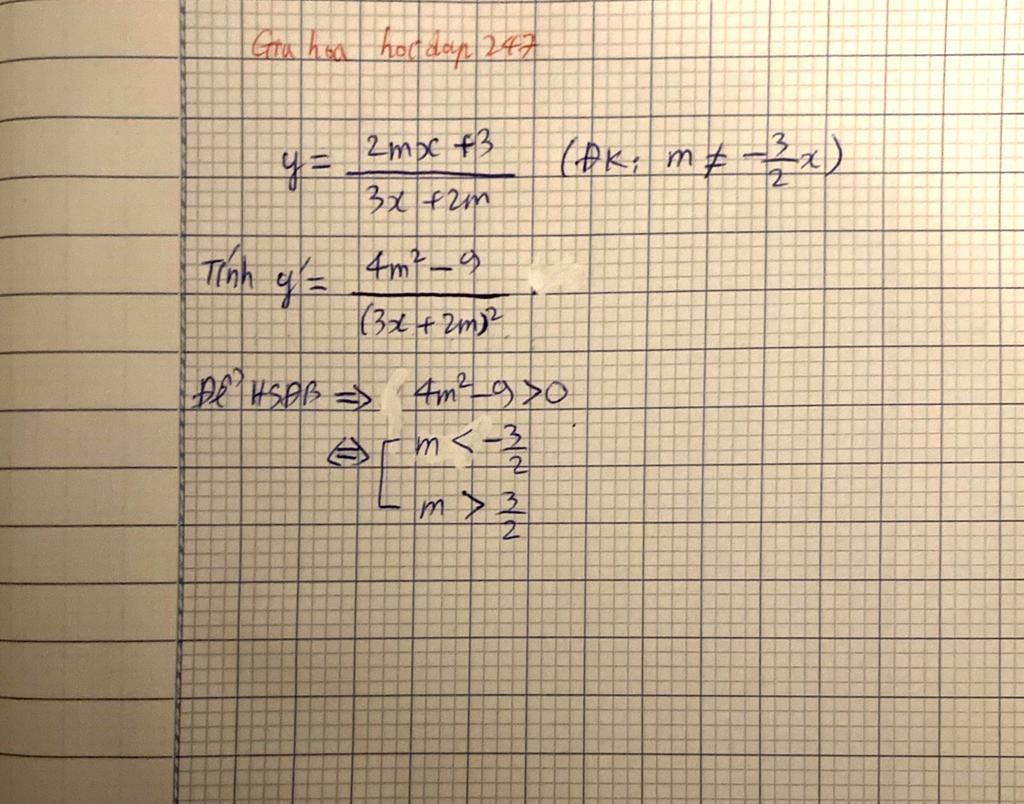 Gia hoa hocdap 247
y = (2mx + 3)/(3x + 2m) (ĐK: m ≠ -3/2 x)
Tính y' = (4m² - 9)/(3x + 2m)²
Để HSĐB ⇒ 4m² - 9 > 0
⇔ [ m < -3/2
m > 3/2